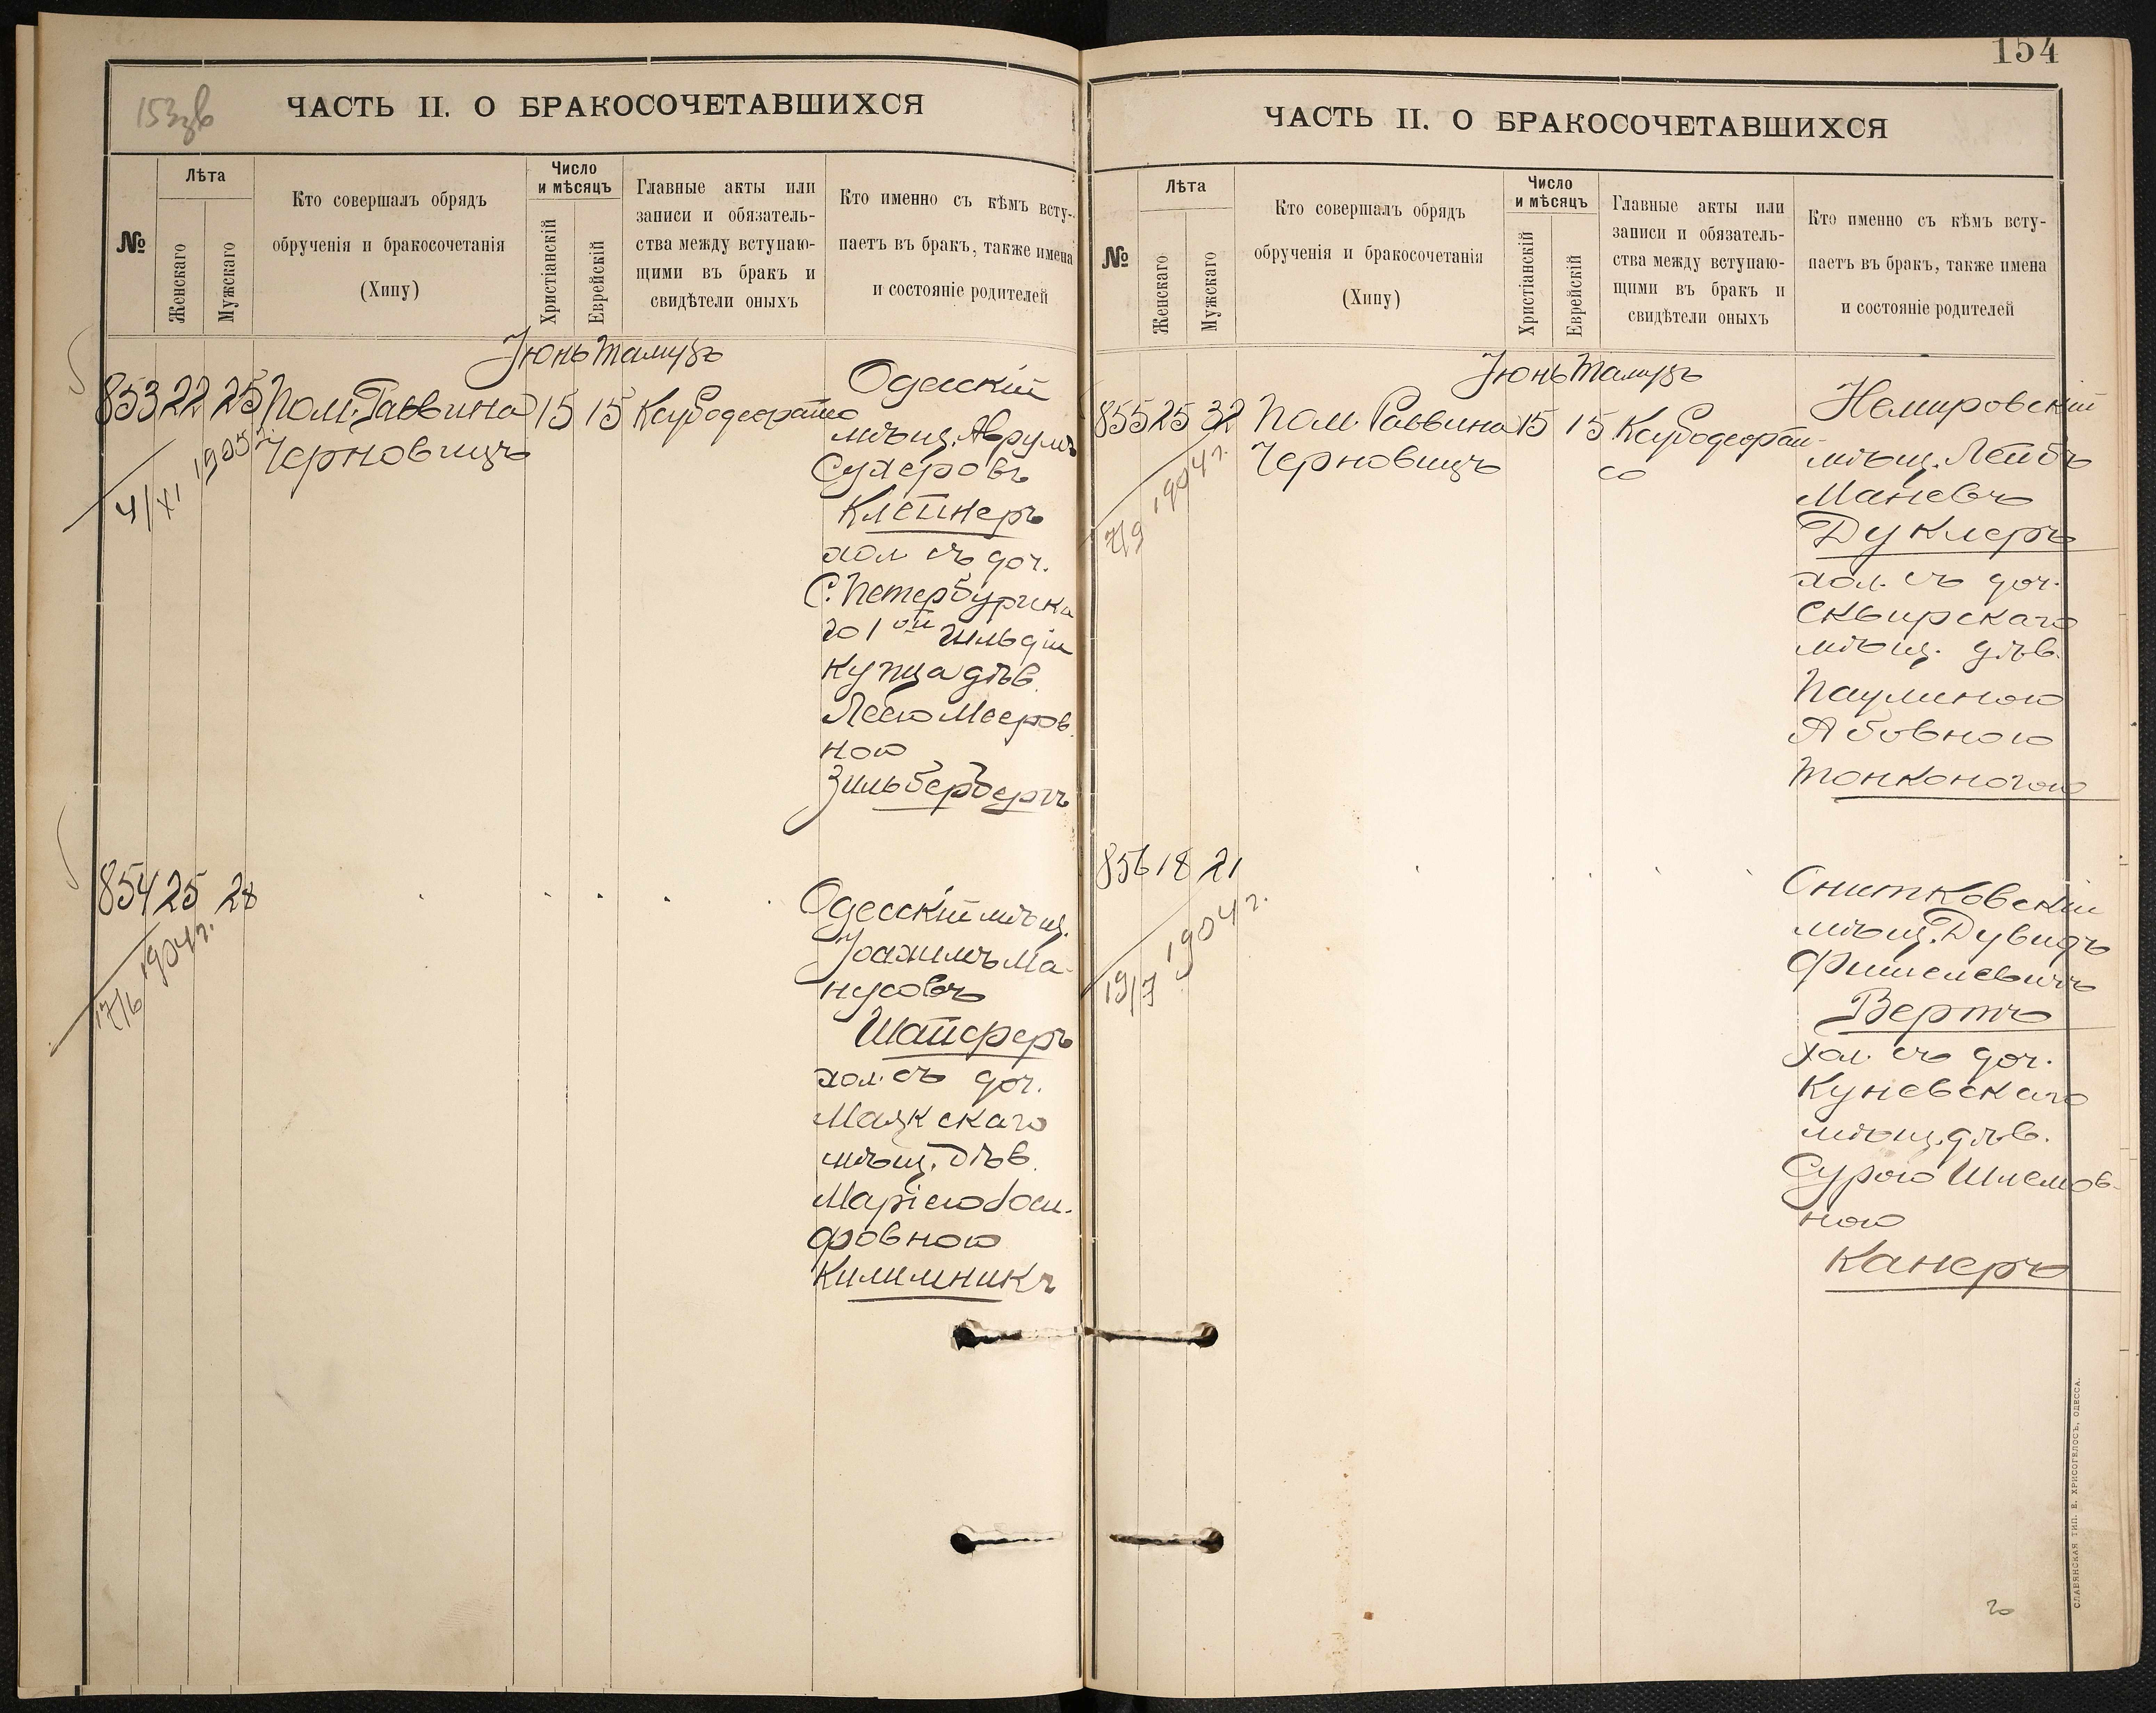 153зв
ЧАСТЬ II. О БРАКОСОЧЕТАВШИХСЯ
№
Лѣта
Женскаго
Мужскаго
Кто совершалъ обрядъ
обрученія и бракосочетанія
(Хипу)
Число
и мѣсяцъ
Христіанскій
Еврейскій
Главные акты или
записи и обязатель-
ства между вступаю-
щими въ бракъ и
свидѣтели оныхъ
Кто именно съ кѣмъ всту-
паетъ въ бракъ, также имена
и состояніе родителей
Іюнь Тамузъ
853 22 25 Пом. Раввина 15 15
Черновицъ
4/XI 1905
Одесскій
мѣщ. Аврумъ
Сухеровъ
Клейнеръ
хол. съ доч.
С. Петербургска
го 1ой гильдіи
купца дѣв.
Леею Мееров
ною
Зильбербергъ
854 25 28
17/6 1904 г.
Одесскій мѣщ.
Іоахимъ Ма-
нусовъ
Шайферъ
хол. съ доч.
Маякскаго
мѣщ. дѣв.
Маріею Іоси-
фовною
Килимникъ
154
ЧАСТЬ II. О БРАКОСОЧЕТАВШИХСЯ
№
Лѣта
Женскаго
Мужскаго
Кто совершалъ обрядъ
обрученія и бракосочетанія
(Хипу)
Число
и мѣсяцъ
Христіанскій
Еврейскій
Главные акты или
записи и обязатель-
ства между вступаю-
щими въ бракъ и
свидѣтели оныхъ
Кто именно съ кѣмъ всту-
паетъ въ бракъ, также имена
и состояніе родителей
Іюнь Тамузъ
855 25 32 Пом. Раввина 15 15
Черновицъ
7/9 1904 г.
Немировскій
мѣщ. Лейбъ
Маневъ
Дуклеръ
хол. съ доч.
Сквирскаго
мѣщ. дѣв.
Паулиною
Абовною
Тонконогою
856 18 21
19/7 1904 г.
Снитковскій
мѣщ. Дувидъ
Фишелевичъ
Вертъ
хол. съ доч.
Куневскаго
мѣщ. дѣв.
Сурою Шлемов-
ною
Канеръ
СЛАВЯНСКАЯ ТИП. Е. ХРИСОГЕЛОСЪ, ОДЕССА.